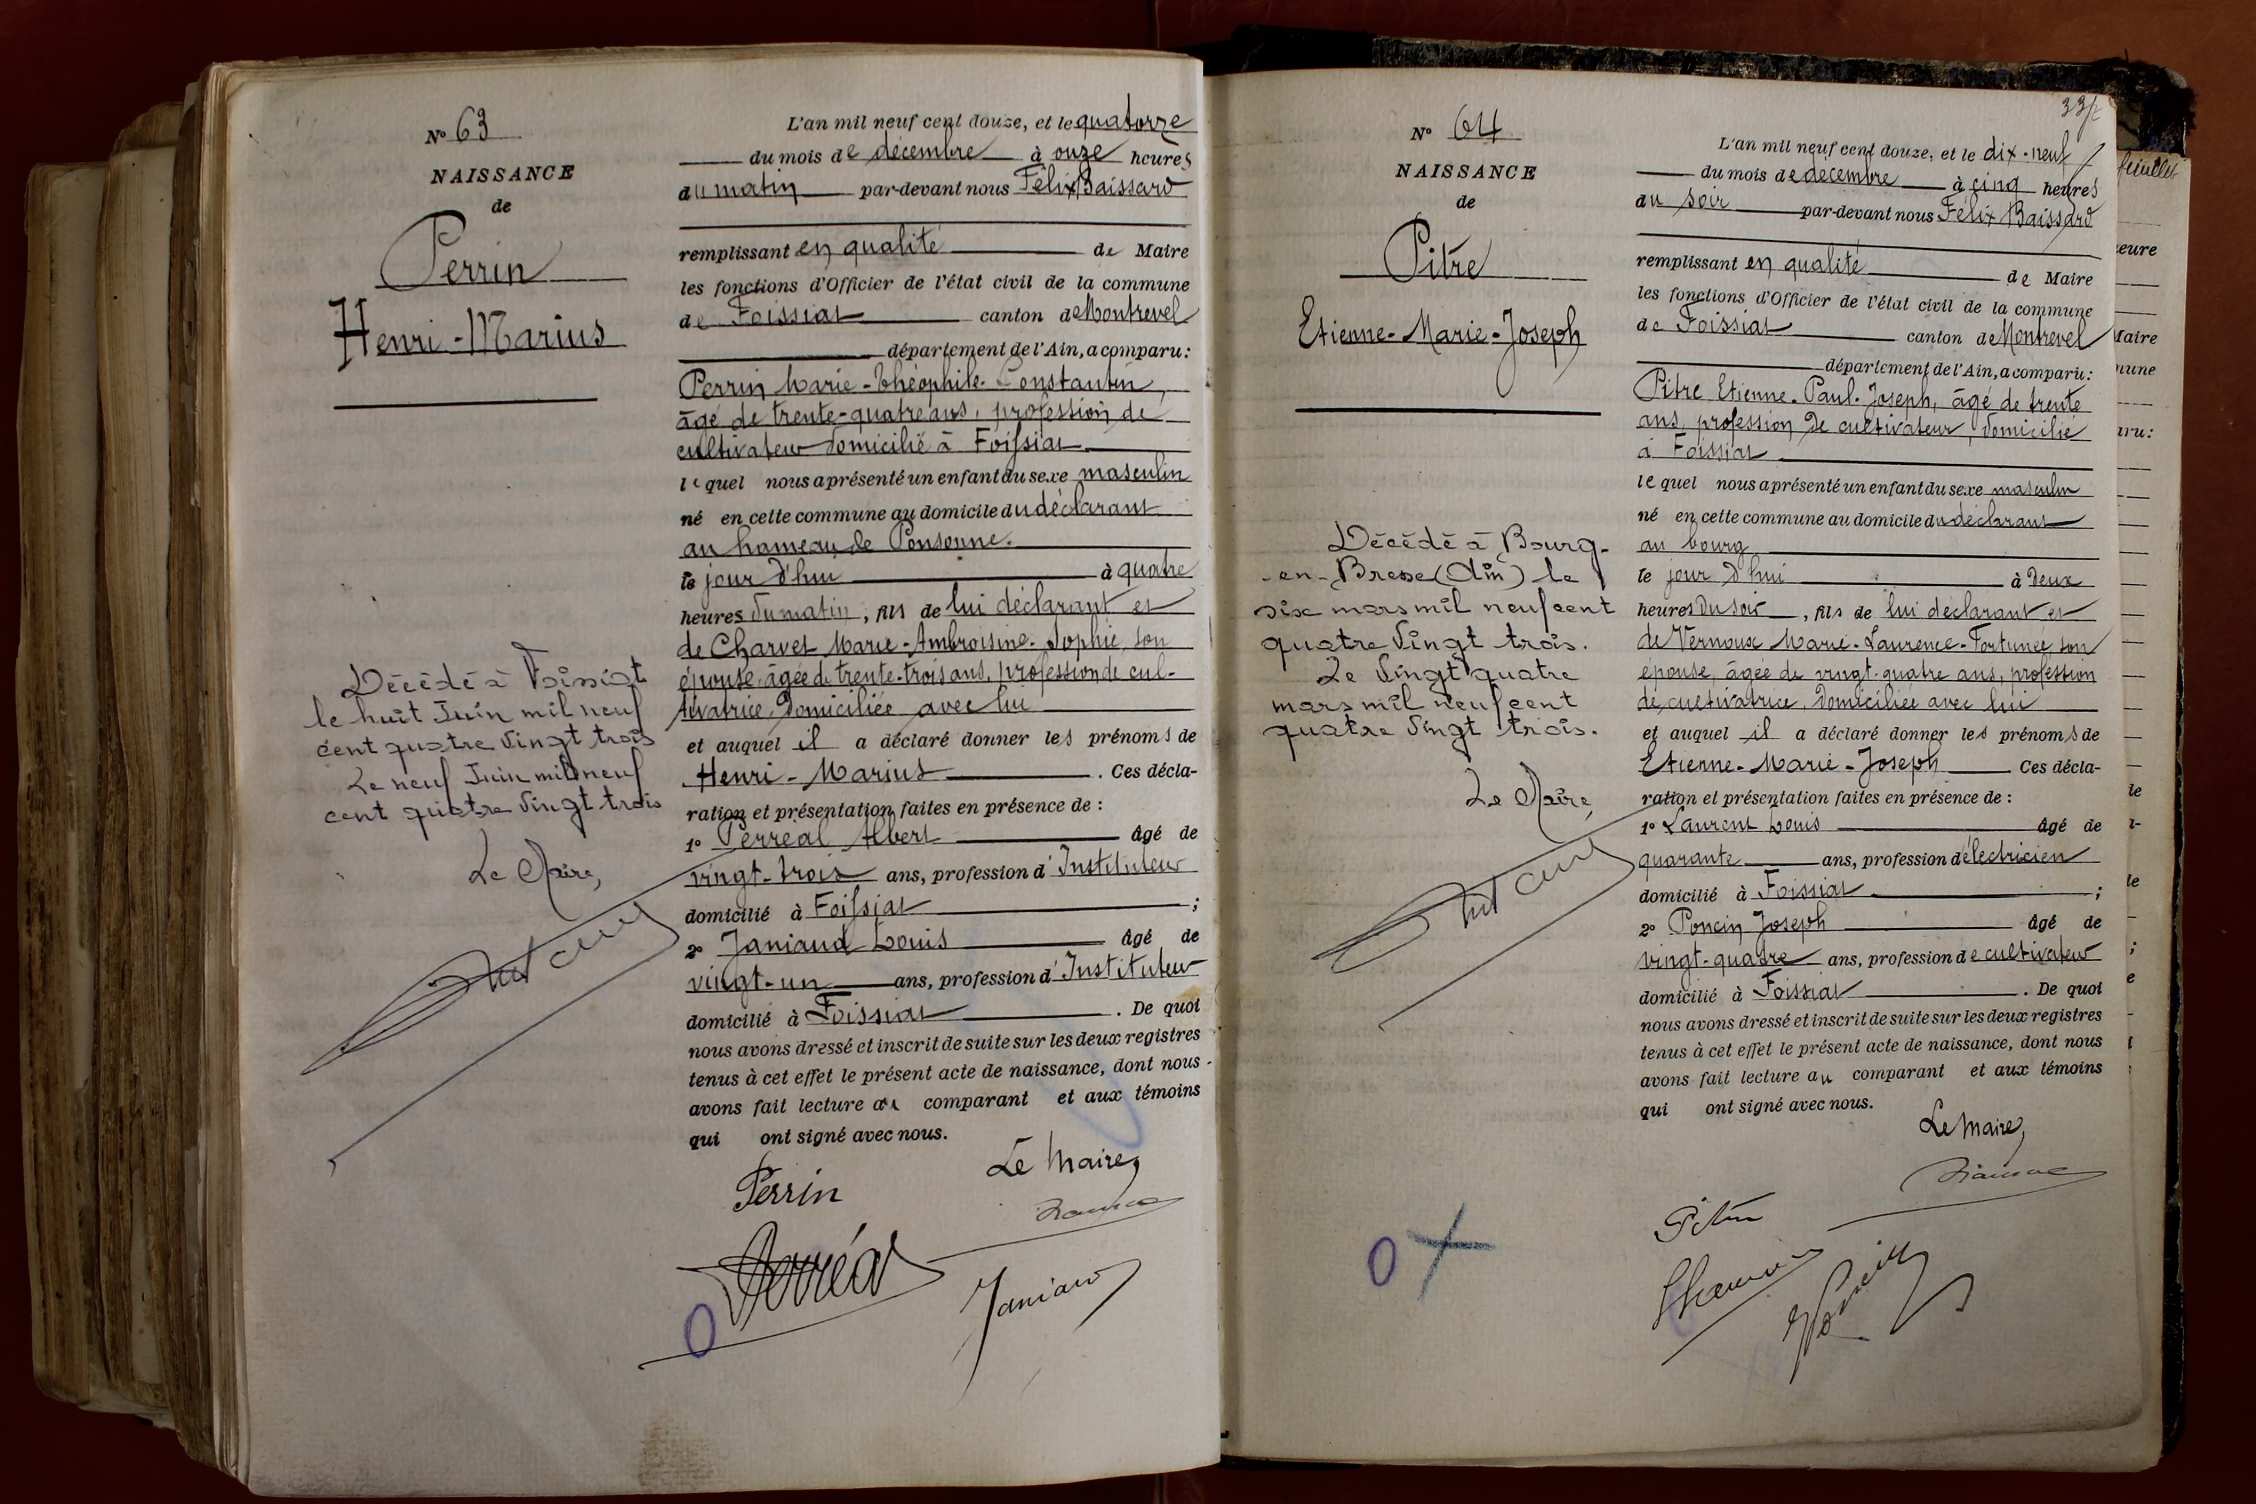 N° 63
NAISSANCE
de
Perrin
Henri-Marius
Décédé à Foissiat
le huit Juin mil neuf
cent quatre vingt trois
Le neuf Juin mil neuf
cent quatre vingt trois
Le Maire,
L'an mil neuf cent douze, et le quatorze
du mois de décembre à onze heures
du matin par-devant nous Félix Baissard
remplissant en qualité de Maire
les fonctions d'Officier de l'état civil de la commune
de Foissiat canton de Montrevel
département de l'Ain, a comparu:
Perrin Marie-Théophile-Constantin,
âgé de trente-quatre ans, profession de
cultivateur domicilié à Foissiat
lequel nous a présenté un enfant du sexe masculin
né en cette commune au domicile du déclarant
au hameau de Ponsonne.
le jour d'hui à quatre
heures du matin, fils de lui déclarant et
de Charvet Marie-Ambroisine-Sophie, son
épouse, âgée de trente-trois ans, profession de cul-
tivatrice, domiciliée avec lui
et auquel il a déclaré donner les prénoms de
Henri-Marius. Ces décla-
ration et présentation faites en présence de :
1° Perréal Albert âgé de
vingt-trois ans, profession d'Instituteur
domicilié à Foissiat ;
2° Janiaud Louis âgé de
vingt-un ans, profession d'Instituteur
domicilié à Foissiat. De quoi
nous avons dressé et inscrit de suite sur les deux registres
tenus à cet effet le présent acte de naissance, dont nous
avons fait lecture au comparant et aux témoins
qui ont signé avec nous.
Le Maire,
Perrin
Perréal
Janiaud
337
N° 64
NAISSANCE
de
Pitre
Etienne-Marie-Joseph
Décédé à Bourg-
-en-Bresse (Ain) le
six mars mil neuf cent
quatre vingt trois.
Le vingt quatre
mars mil neuf cent
quatre vingt trois.
Le Maire,
L'an mil neuf cent douze, et le dix-neuf
du mois de décembre à cinq heures
du soir par-devant nous Félix Baissard
remplissant en qualité de Maire
les fonctions d'Officier de l'état civil de la commune
de Foissiat canton de Montrevel
département de l'Ain, a comparu:
Pitre Etienne-Paul-Joseph, âgé de trente
ans, profession de cultivateur, domicilié
à Foissiat
lequel nous a présenté un enfant du sexe masculin
né en cette commune au domicile du déclarant
au bourg
le jour d'hui à deux
heures du soir, fils de lui déclarant et
de Vernoux Marie-Laurence-Fortunée, son
épouse, âgée de vingt-quatre ans, profession
de cultivatrice, domiciliée avec lui
et auquel il a déclaré donner les prénoms de
Etienne-Marie-Joseph Ces décla-
ration et présentation faites en présence de :
1° Laurent Louis âgé de
quarante ans, profession d'électricien
domicilié à Foissiat ;
2° Poncin Joseph âgé de
vingt-quatre ans, profession de cultivateur
domicilié à Foissiat. De quoi
nous avons dressé et inscrit de suite sur les deux registres
tenus à cet effet le présent acte de naissance, dont nous
avons fait lecture au comparant et aux témoins
qui ont signé avec nous.
Le Maire,
Pitre
feuillet
Maire